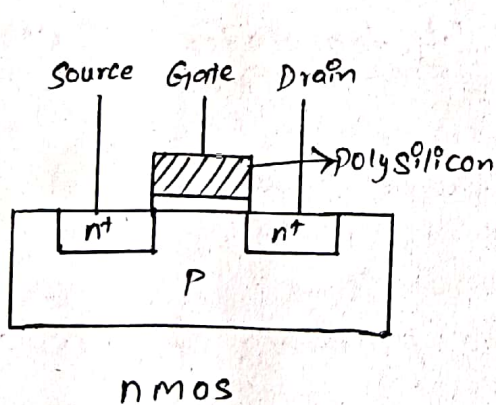 Source Gate Drain
Polysilicon
n+ n+
P
nmos